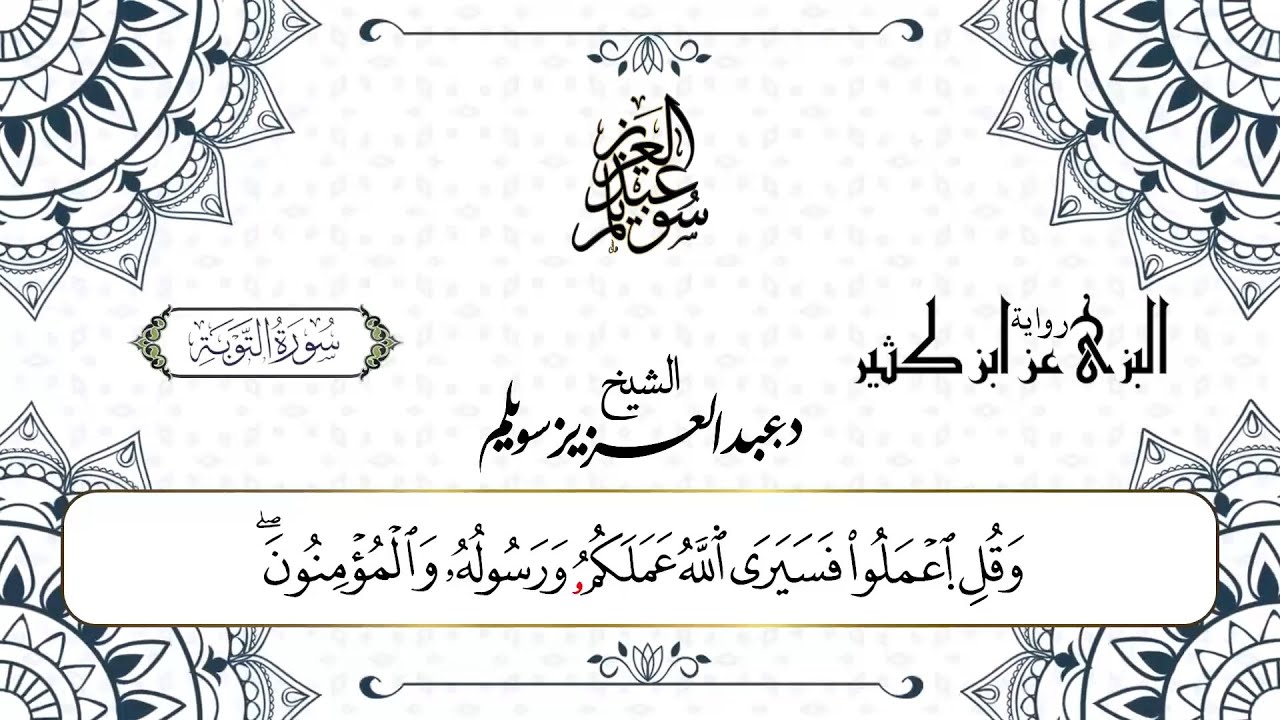 عبد العزيز سويلم
رواية
البزي عن ابن كثير
سُورَةُ التَّوْبَة
الشيخ
د عبد العزيز سويلم
وَقُلِ ٱِعۡمَلُواْ فَسَيَرَى ٱللَّهُ عَمَلَكُمُۥ وَرَسُولُهُۥ وَٱلۡمُؤۡمِنُونَۖ